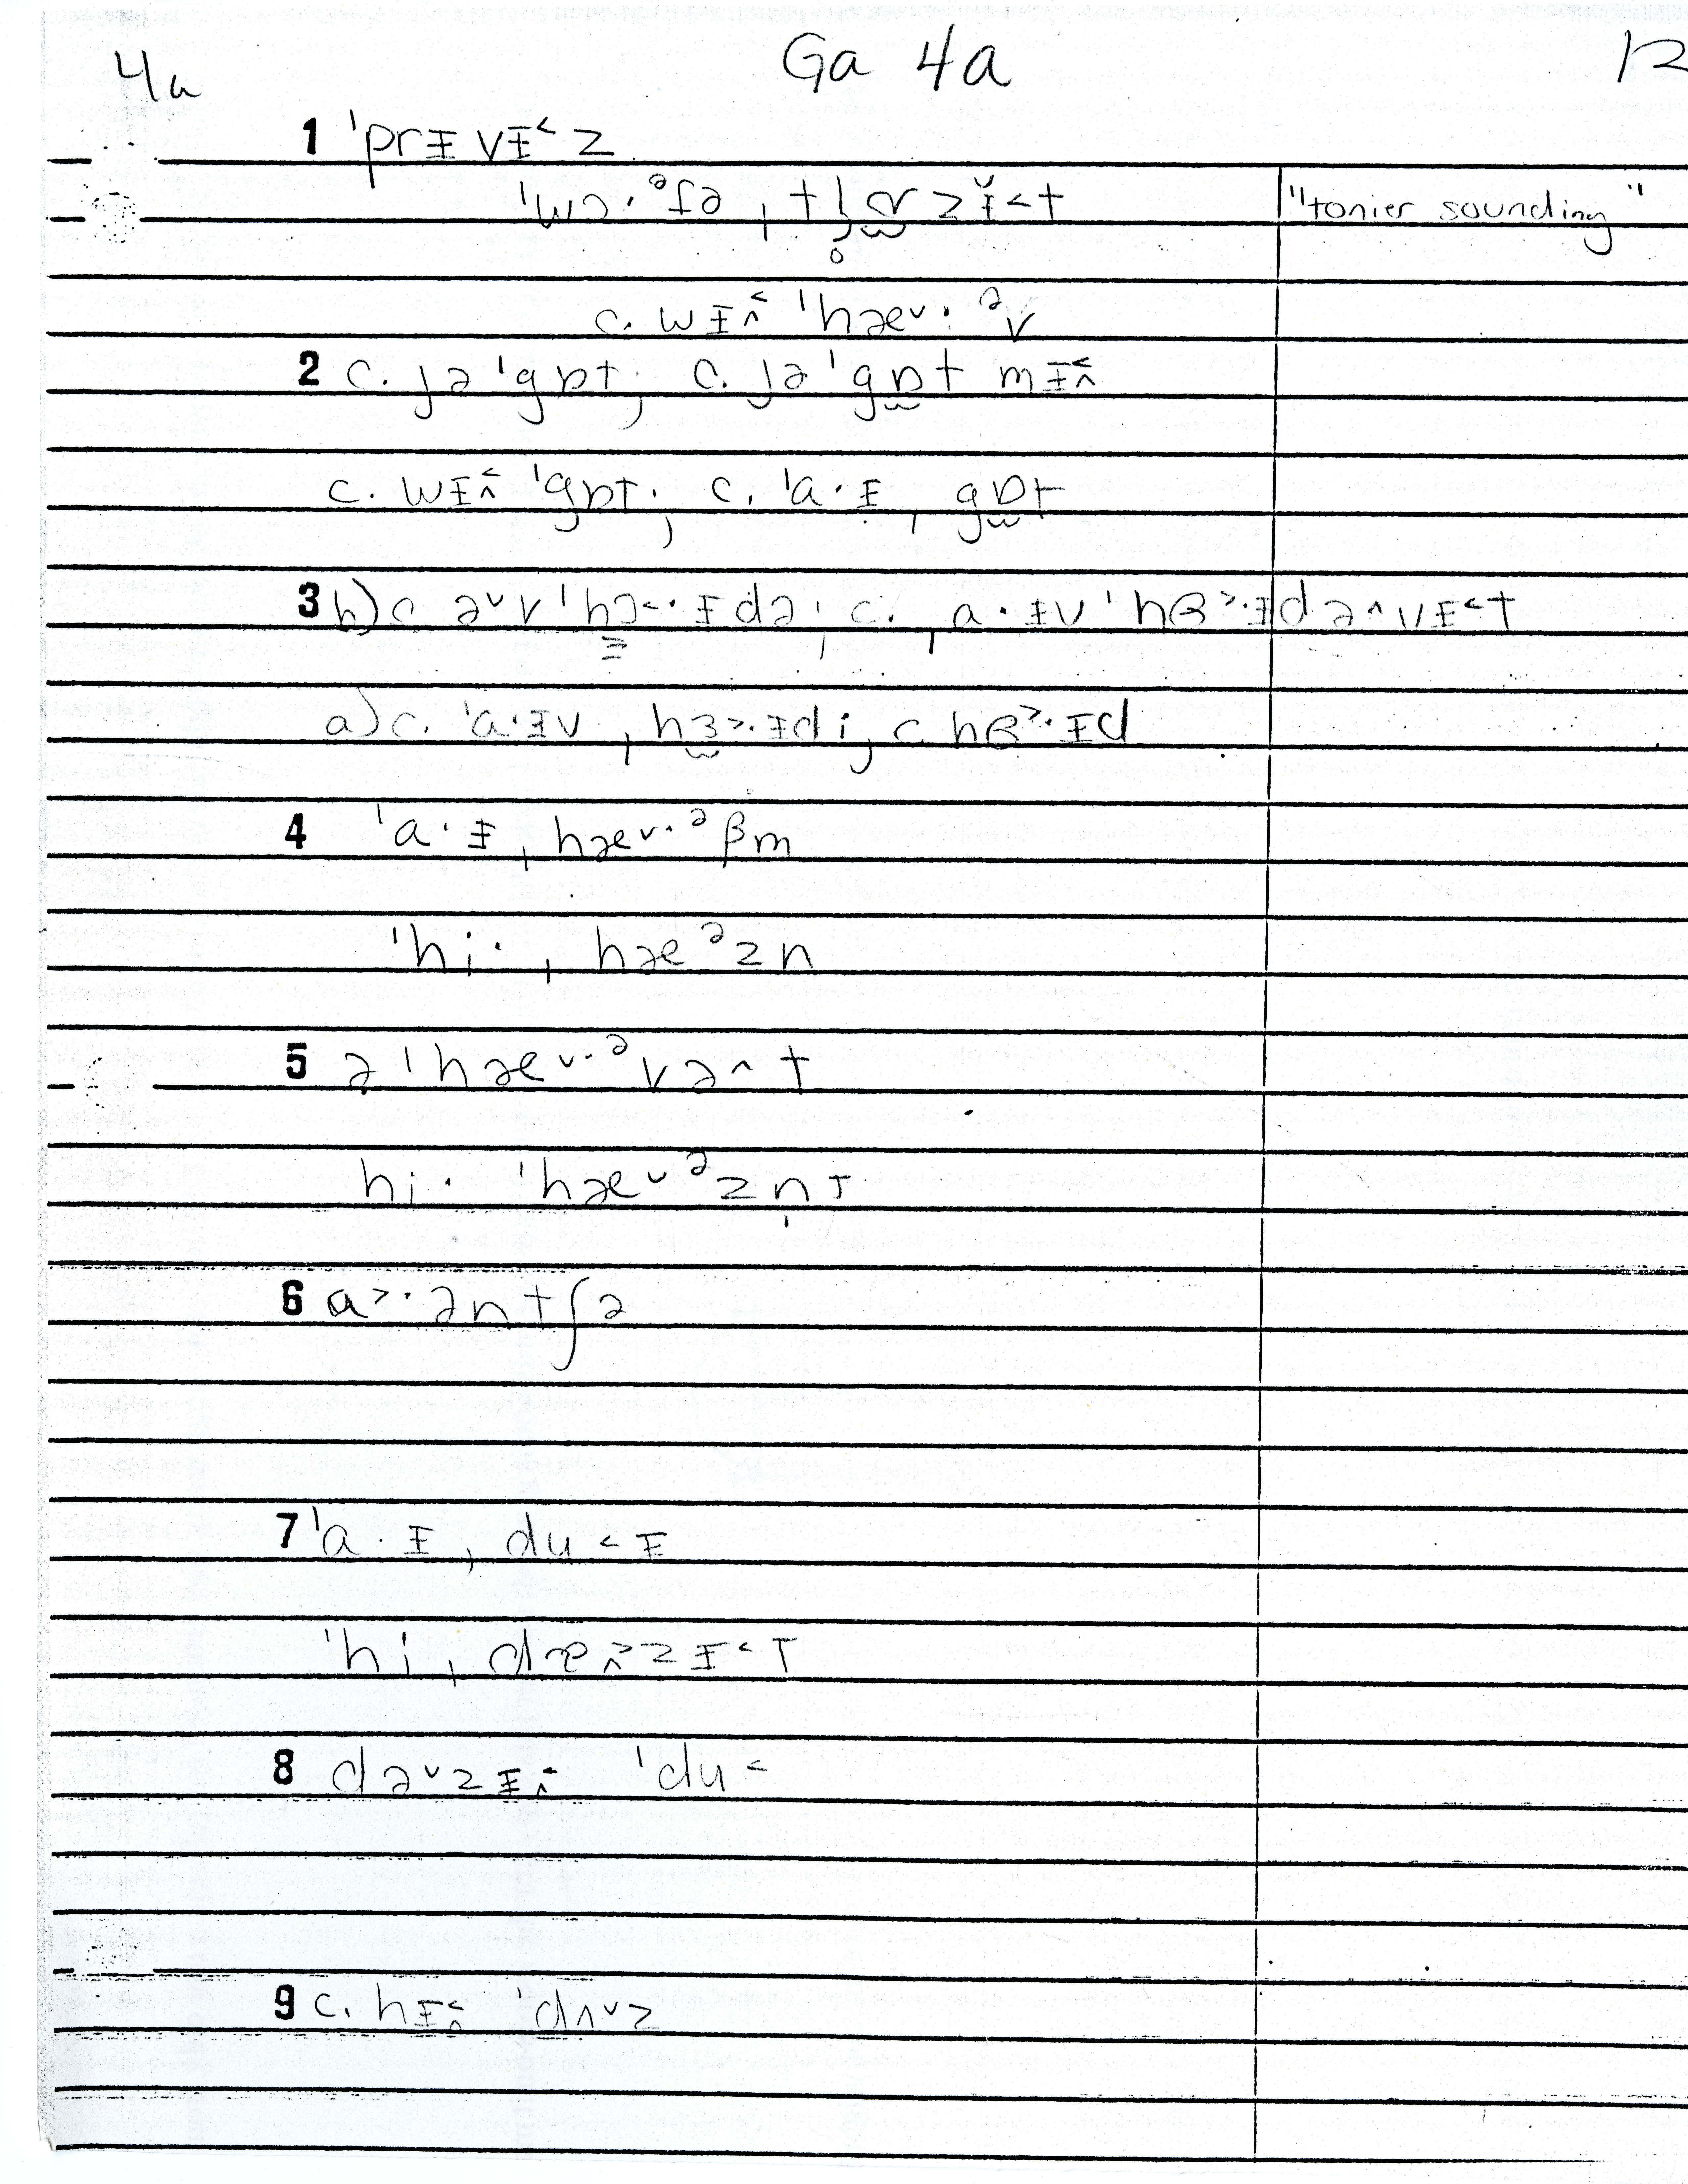 4a Ga 4a 12
1 ˈprᵻvᵻ˂z
ˈwɔ·ᵊʃə ˌtl̥ɚ̬zᵻ̆˂t "tonier sounding"
c. wᵻ˂˄ ˈhæ˅·ᵊv
2 c. jə ˈgɒt; c. jə ˈgɒ̫t mᵻ˂˄
c. wᵻ˂˄ ˈgɒt; c. ˈa·ᵻ ˌgɒ̫t
3 b) c. ə˅v ˈhɜ˂·ᵻdə; c. ˌa·ᵻv ˈhɞ˃·ᵻdə˄vᵻ˂t
a) c. ˈa·ᵻv ˌhɜ̫˃·ᵻd; c hɞ˃·ᵻd
4 ˈa·ᵻ ˌhæ˅·ᵊβm
ˈhi· ˌhæᵊzn
5 ə ˈhæ˅·ᵊvə˄t
hi· ˈhæ˅ᵊzn̩t
6 a˃·əntʃə
7 ˈa·ᵻ ˌdu˂ᵻ
ˈhi ˌdɐ˄˃zᵻ˂t
8 də˅zᵻ˂˄ ˈdu˂
9 c. hᵻ˂˄ ˈdʌ˅z